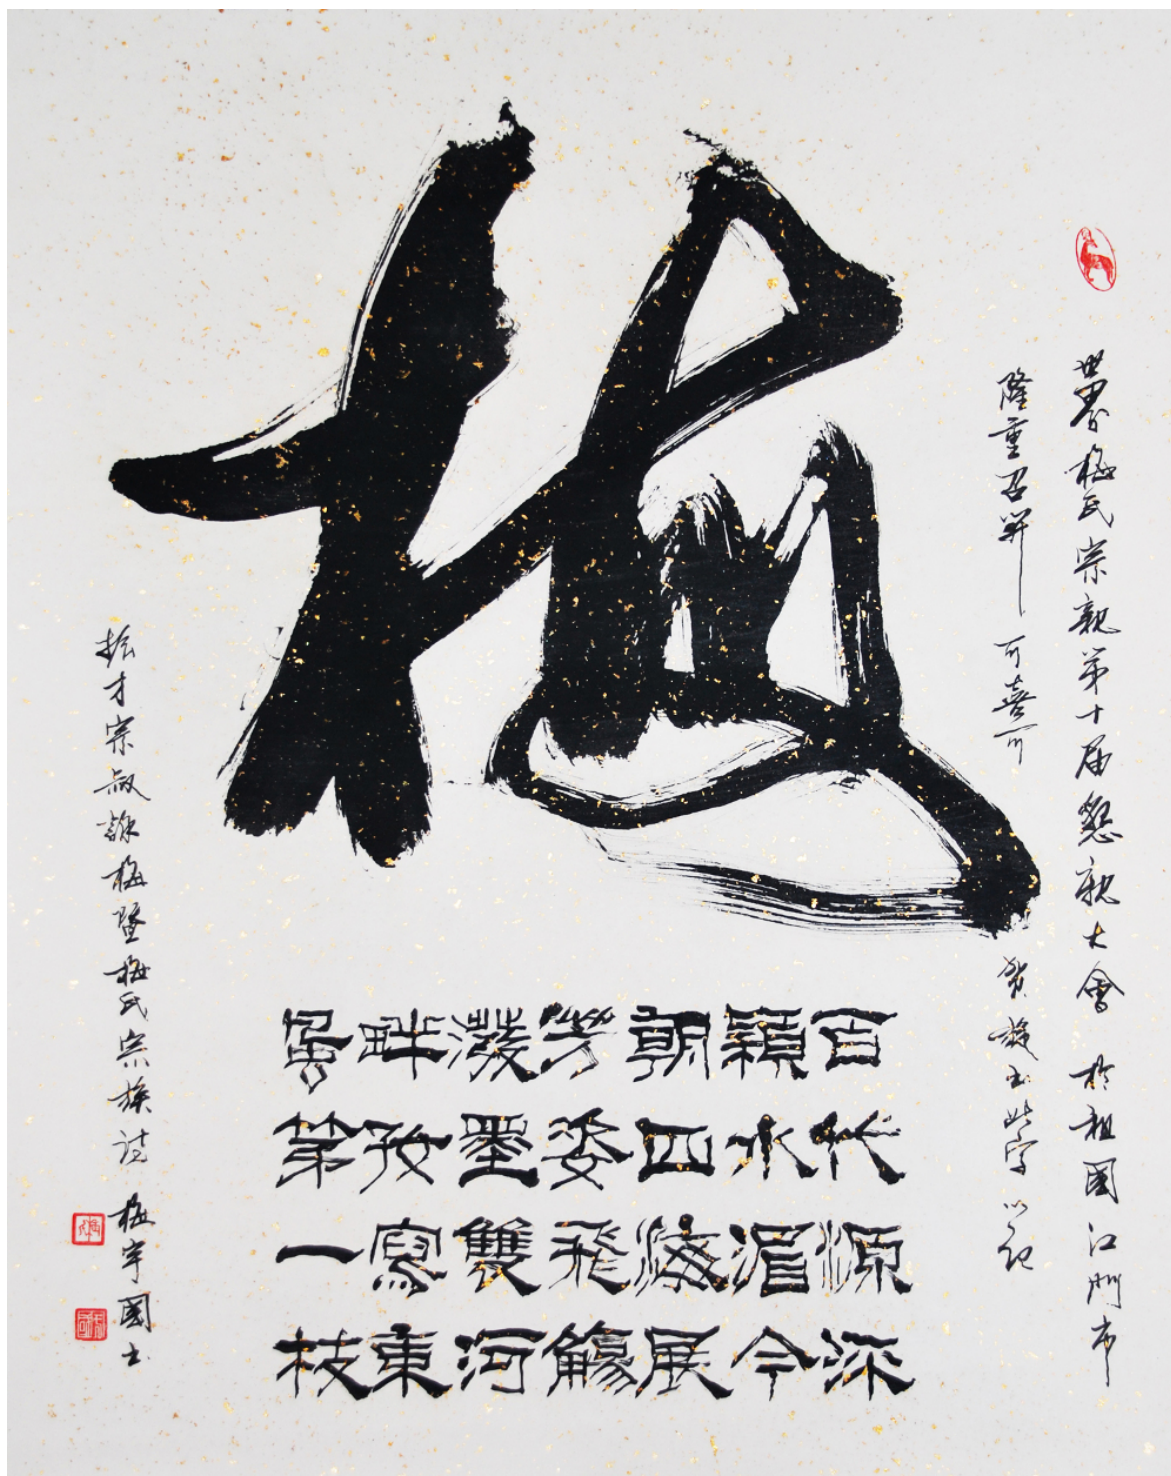 世界梅氏宗親第十届懇親大會 於祖國江門市
隆重召開 可喜可賀 敬書此字 以記
梅
百代源深
穎水湄今
朝四海展
芳姿飛觴
潑墨雙河
畔好寫東
風第一枝
振才宗叔詠梅暨梅氏宗族詩 梅宇國書